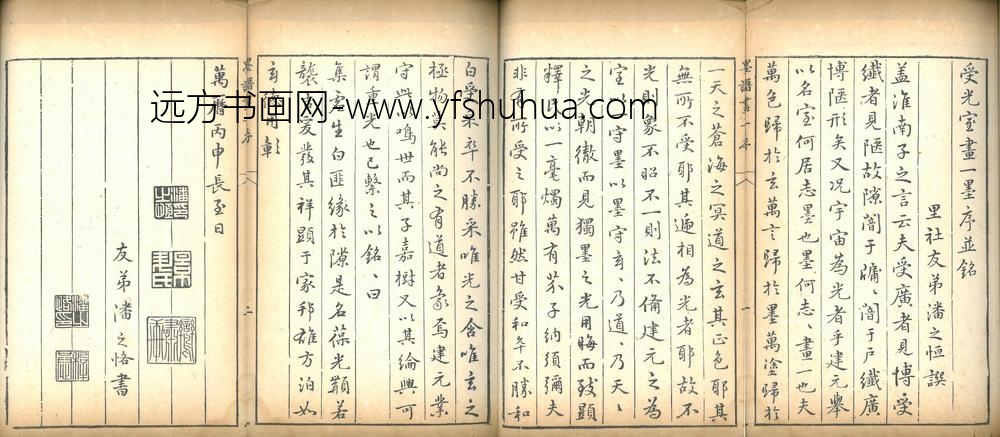 受光室畫一墨序並銘
里社友弟潘之恒譔
盖淮南子之言云夫受廣者見博受
纖者見陿故隙闇于牖〻闇于戶纖廣
博陿形矣又况宇宙為光者乎建元舉
以名室何居志墨也墨何志〻畫一也夫
萬色歸於玄萬言歸於墨萬塗歸於
墨譜畫一序 一
一天之蒼海之冥道之玄其正色耶其
無所不受耶其遞相為光者耶故不
光則象不昭不一則法不備建元之為
室以守墨以墨守玄〻乃道〻乃天〻
之光朝徹而見獨墨之光用晦而顯
釋氏以一毫燭萬有芥子納須彌夫
非有所受之耶雖然甘受和卒不勝和
白受采卒不勝采唯光之舍唯玄之
極物莫能尚之有道者象焉建元業
守此鳴世而其子嘉樹又以其綸興可
謂重光也已繫之以銘〻曰
集玄生白匪緣於隙是名葆光顯若
襲爰發其祥顯于家邦雄方泊如
玄用彰
墨譜序 二
萬曆丙申長至日
友弟潘之恪書
远方书画网-www.yfshuhua.com